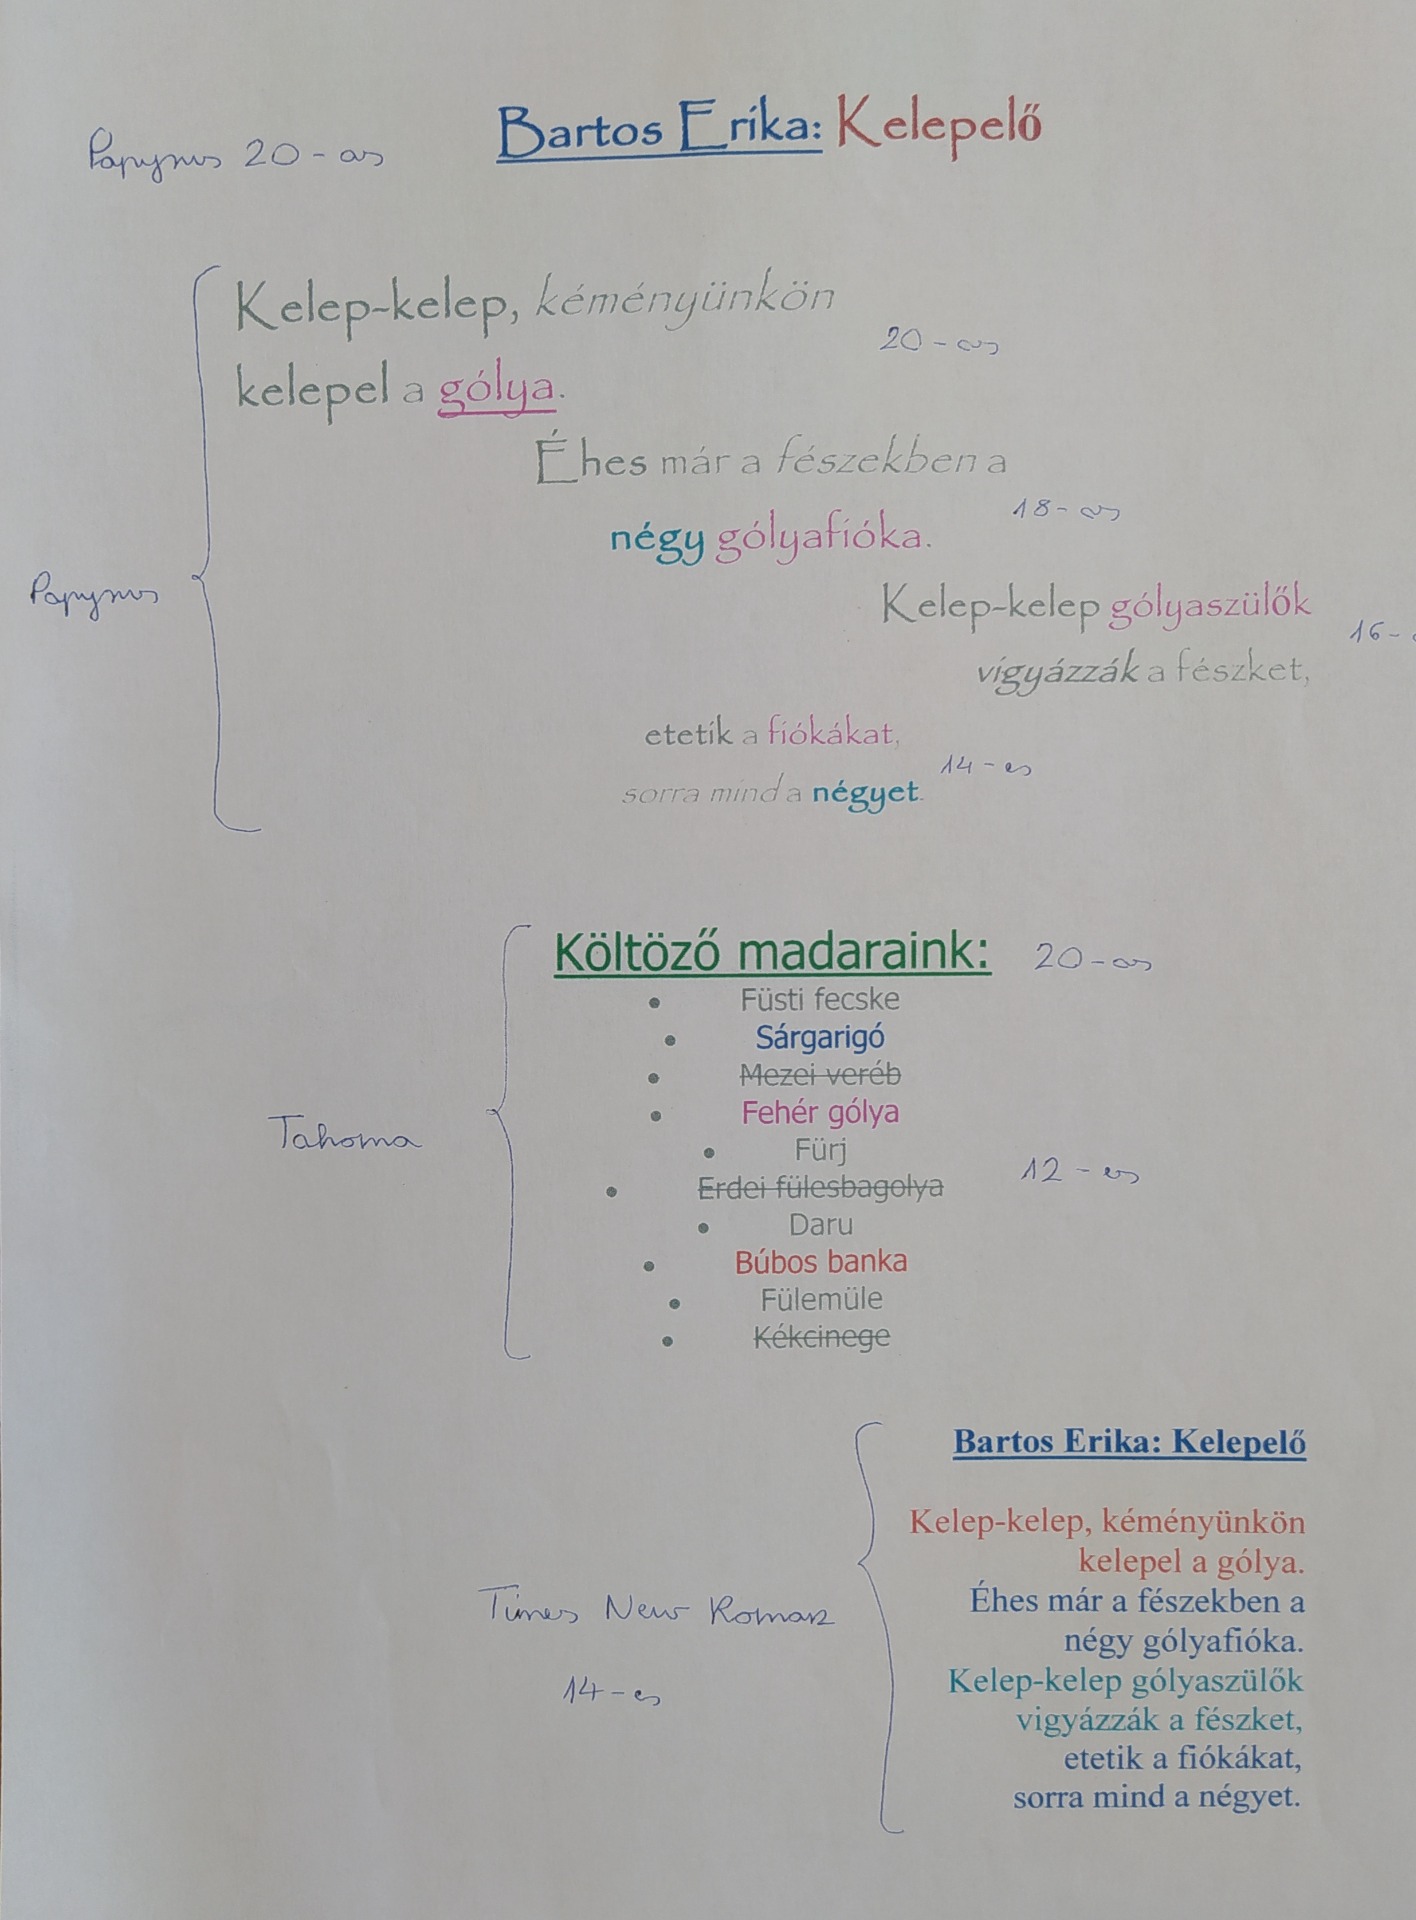 Papyrus 20-as
Bartos Erika: Kelepelő
Kelep-kelep, kéményünkön
20-as
kelepel a gólya.
Éhes már a fészekben a
18-as
négy gólyafióka.
Papyrus
Kelep-kelep gólyaszülők
16-
vigyázzák a fészket,
etetik a fiókákat,
14-es
sorra mind a négyet.
Költöző madaraink:
20-as
• Füsti fecske
• Sárgarigó
• Mezei veréb
• Fehér gólya
Tahoma
• Fürj
12-es
• Erdei fülesbagolya
• Daru
• Búbos banka
• Fülemüle
• Kékcinege
Bartos Erika: Kelepelő
Kelep-kelep, kéményünkön
kelepel a gólya.
Éhes már a fészekben a
Times New Roman
négy gólyafióka.
Kelep-kelep gólyaszülők
14-es
vigyázzák a fészket,
etetik a fiókákat,
sorra mind a négyet.